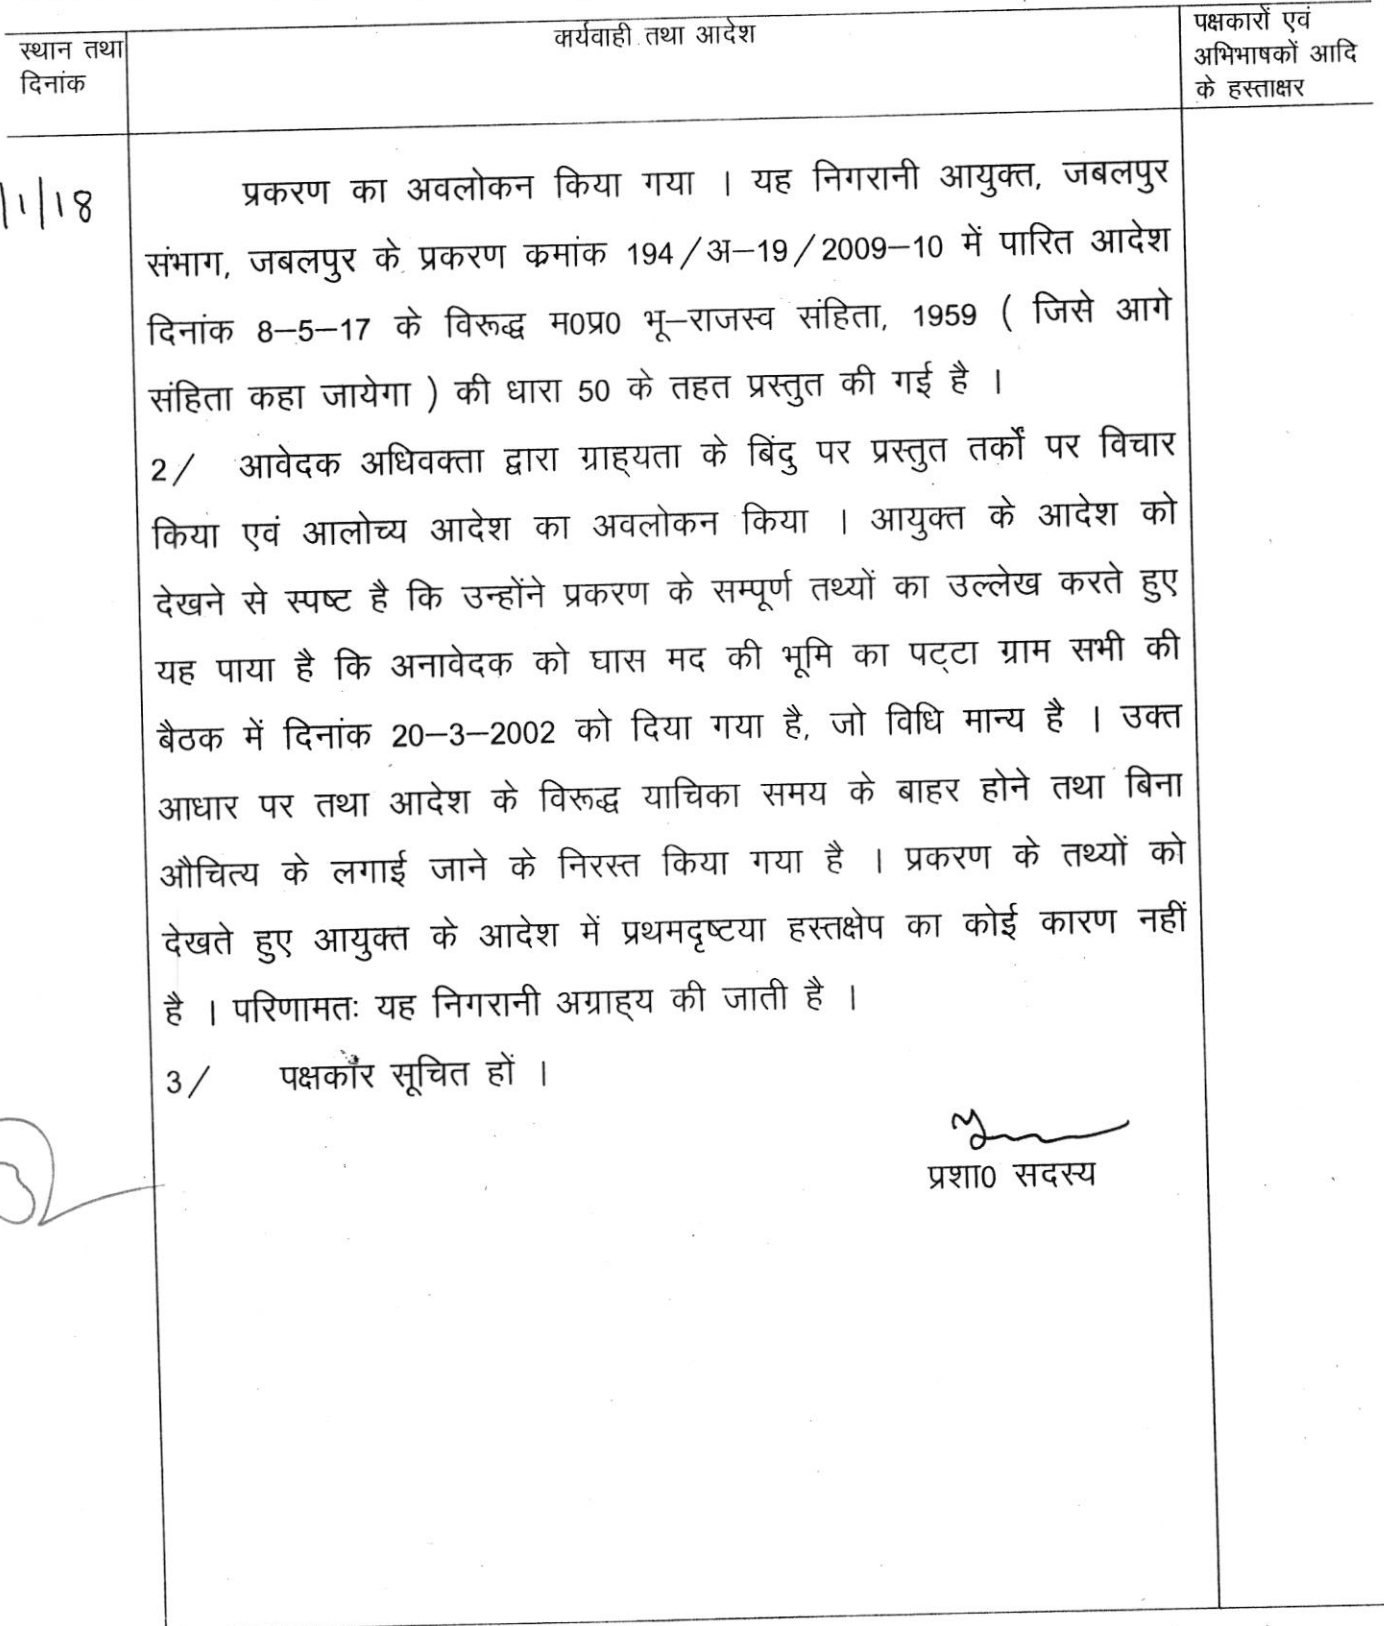 स्थान तथा
दिनांक
कार्यवाही तथा आदेश
पक्षकारों एवं
अभिभाषकों आदि
के हस्ताक्षर
/1/18
प्रकरण का अवलोकन किया गया । यह निगरानी आयुक्त, जबलपुर
संभाग, जबलपुर के प्रकरण क्रमांक 194/अ–19/2009–10 में पारित आदेश
दिनांक 8–5–17 के विरूद्ध म0प्र0 भू–राजस्व संहिता, 1959 ( जिसे आगे
संहिता कहा जायेगा ) की धारा 50 के तहत प्रस्तुत की गई है ।
2/ आवेदक अधिवक्ता द्वारा ग्राह्यता के बिंदु पर प्रस्तुत तर्कों पर विचार
किया एवं आलोच्य आदेश का अवलोकन किया । आयुक्त के आदेश को
देखने से स्पष्ट है कि उन्होंने प्रकरण के सम्पूर्ण तथ्यों का उल्लेख करते हुए
यह पाया है कि अनावेदक को घास मद की भूमि का पट्टा ग्राम सभी की
बैठक में दिनांक 20–3–2002 को दिया गया है, जो विधि मान्य है । उक्त
आधार पर तथा आदेश के विरूद्ध याचिका समय के बाहर होने तथा बिना
औचित्य के लगाई जाने के निरस्त किया गया है । प्रकरण के तथ्यों को
देखते हुए आयुक्त के आदेश में प्रथमदृष्टया हस्तक्षेप का कोई कारण नहीं
है । परिणामतः यह निगरानी अग्राह्य की जाती है ।
3/ पक्षकार सूचित हों ।
प्रशा0 सदस्य